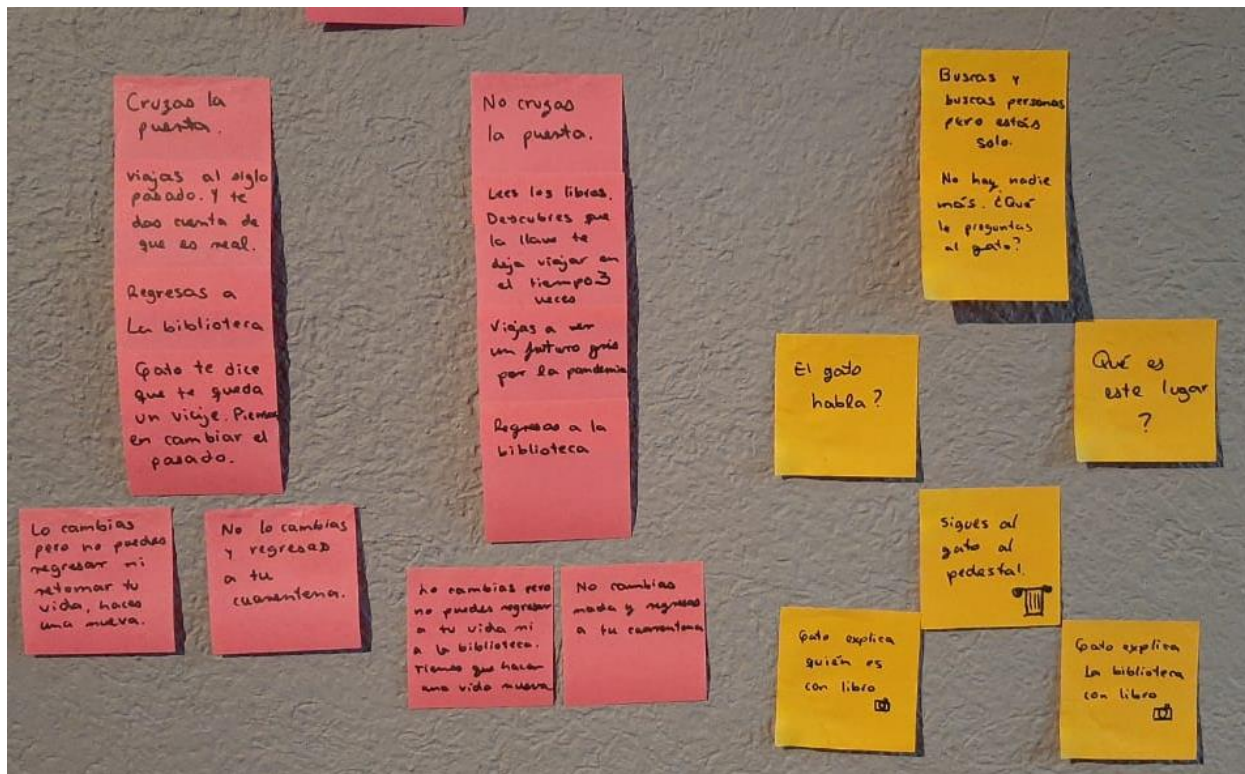 Cruzas la
puerta.
viajas al siglo
pasado. Y te
das cuenta de
que es real.
Regresas a
La biblioteca
Gato te dice
que te queda
un viaje. Piensas
en cambiar el
pasado.
Lo cambias
pero no puedes
regresar ni
retomar tu
vida, haces
una nueva.
No lo cambias
y regresas
a tu
cuarentena.
No cruzas
la puerta.
Lees los libros.
Descubres que
la llave te
deja viajar en
el tiempo 3
veces
Viajas a ver
un futuro gris
por la pandemia
Regresas a la
biblioteca
Lo cambias pero
no puedes regresar
a tu vida ni
a la biblioteca.
Tienes que hacer
una vida nueva
No cambias
nada y regresas
a tu cuarentena
Buscas y
buscas personas
pero estás
solo.
No hay nadie
más. ¿Qué
le preguntas
al gato?
El gato
habla?
Qué es
este lugar
?
Sigues al
gato al
pedestal.
Gato explica
quién es
con libro
Gato explica
La biblioteca
con libro